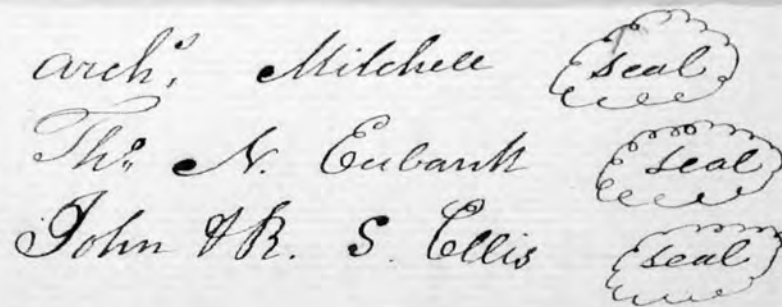 Archs. Mitchell seal
Thos. N. Eubank seal
John & R. S. Ellis seal